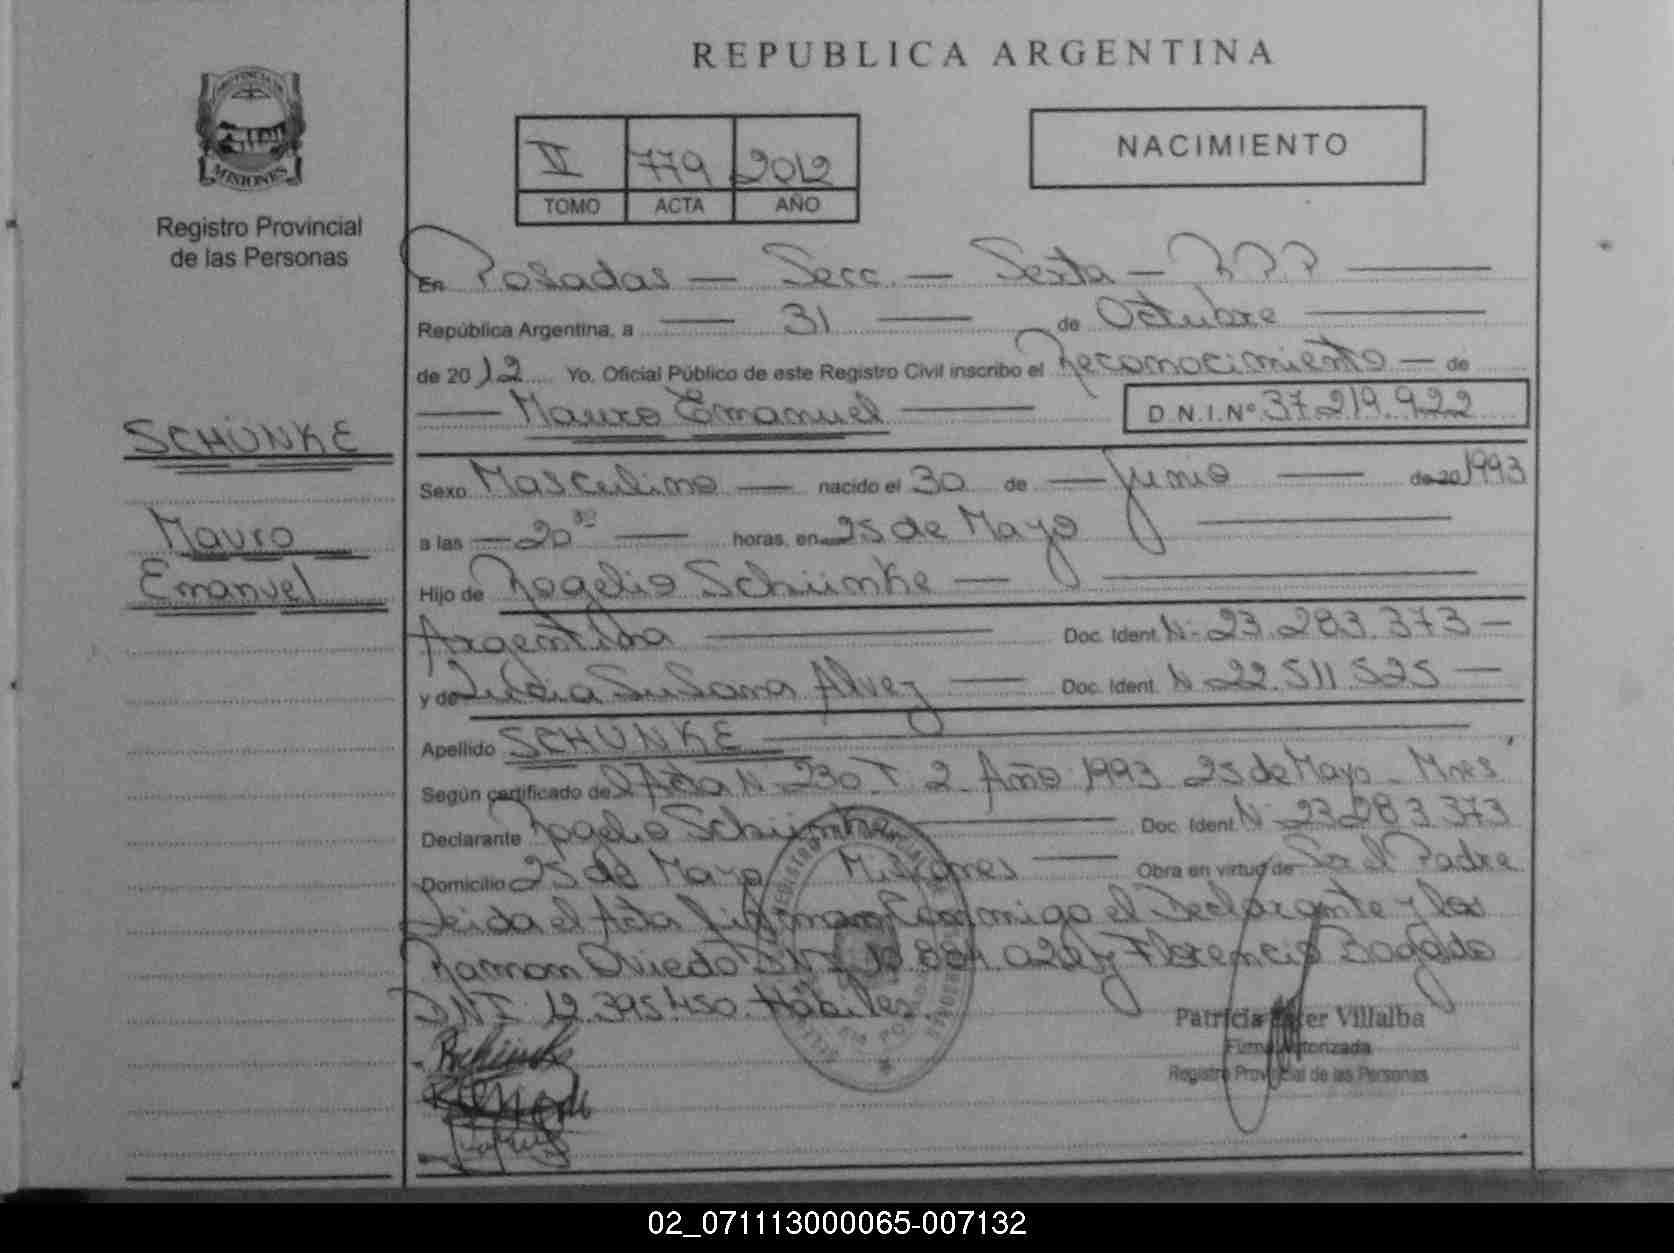 REPUBLICA ARGENTINA
PROVINCIA DE
MISIONES
Registro Provincial
de las Personas
VI 779 2012
TOMO ACTA AÑO
NACIMIENTO
En Posadas — Secc. — Sexta — RPP
República Argentina, a — 31 — de Octubre
de 2012 Yo, Oficial Público de este Registro Civil inscribo el Reconocimiento — de
— Mauro Emanuel — D.N.I. Nº 37.219.922
SCHÜNKE
Mauro
Emanuel
Sexo Masculino — nacido el 30 de — Junio — de 20 1993
a las — 20 30 — horas, en 25 de Mayo —
Hijo de Rogelio Schünke —
Argentina — Doc. Ident. Nº 23.283.373 —
y de Lidia Susana Alvez — Doc. Ident. Nº 22.511.525 —
Apellido SCHÜNKE
Según certificado de el Acta Nº 230 T 2 Año 1993 25 de Mayo - Mnes
Declarante Rogelio Schünke — Doc. Ident. Nº 23.283.373
Domicilio 25 de Mayo Misiones — Obra en virtud de Ser el Padre
Leida el Acta firman Conmigo el Declarante y los
Ramon Oviedo DNI 024 y Florencio
DNI 12.395.450 Hábiles.
Patricia Ester Villalba
Firma Autorizada
Registro Provincial de las Personas
02_071113000065-007132